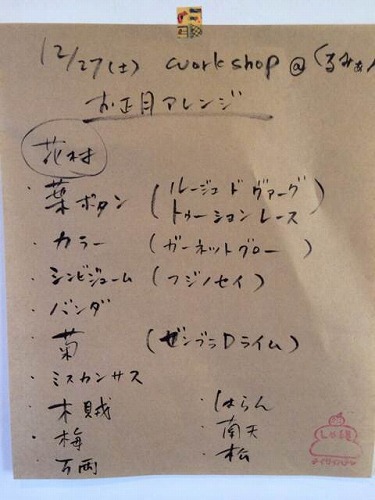 12/27(土) workshop @くるみぁ
お正月アレンジ
花材
・葉ボタン (ルージュドヴァーグ
トゥーションレース)
・カラー (ガーネットグロー)
・シンビジューム (フジノセイ)
・バンダ
・菊 (ゼンブラDライム)
・ミスカンサス
・木賊 ・はらん
・梅 ・南天
・万両 ・松